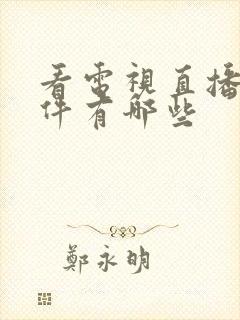 看電視直播
件有哪些
鄭永明